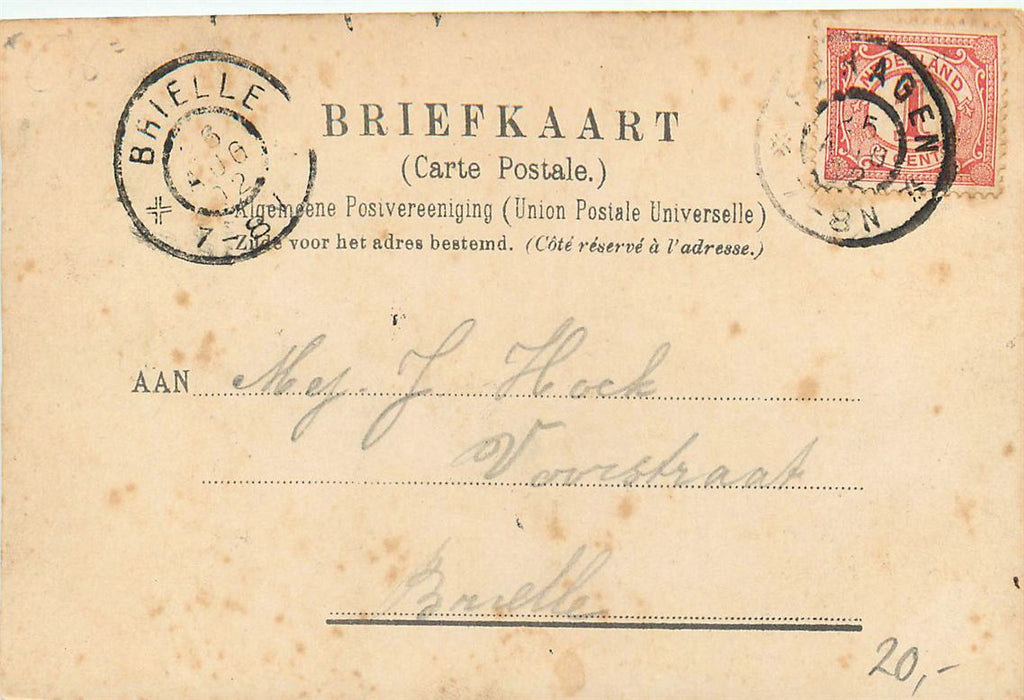 BRIELLE
6
AUG
02
7-8
NEDERLAND
1
CENT
HAGEN
8N
BRIEFKAART
(Carte Postale.)
Algemeene Postvereeniging (Union Postale Universelle)
Zijde voor het adres bestemd. (Côté réservé à l'adresse.)
AAN Mej. J Hock
Voorstraat
Brielle
20,-